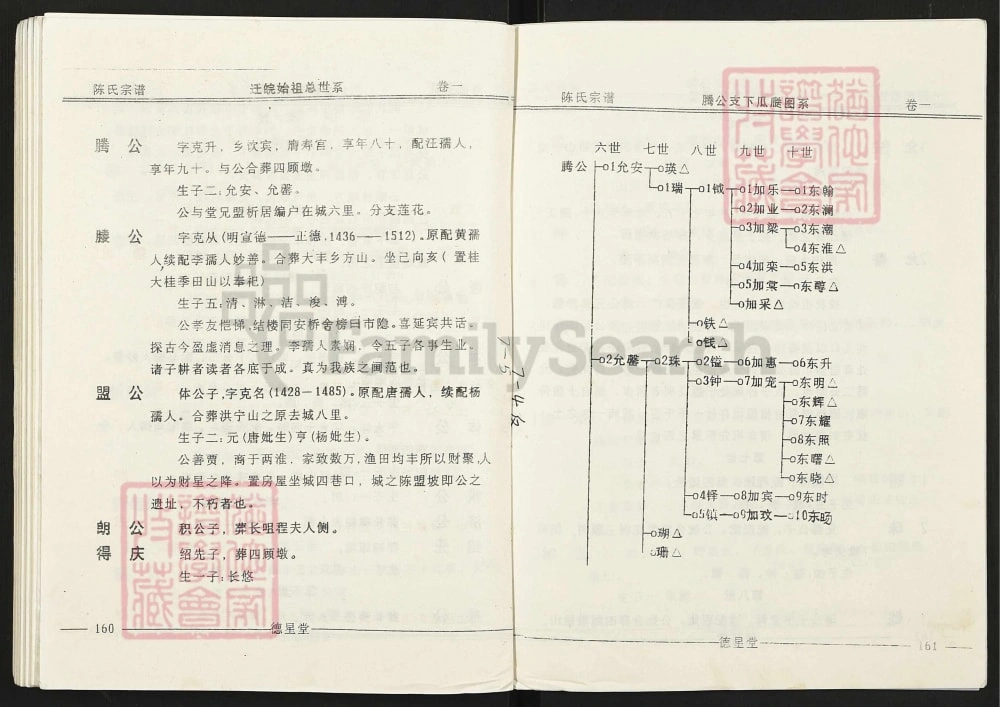 陈氏宗谱 迁皖始祖总世系 卷一
腾公 字克升，乡饮宾，膺寿官，享年八十，配汪孺人，
享年九十。与公合葬四顾墩。
生子二：允安、允馨。
公与堂兄盟析居编户在城六里。分支莲花。
公 字克从(明宣德——正德，1436——1512)。原配黄孺
人续配李孺人妙善。合葬大丰乡方山。坐巳向亥(置桂
大桂季田山以奉祀)
生子五：清、淋、洁、浚、溥。
公孝友恺悌，结楼同安桥舍榜曰市隐。喜延宾共话。
探古今盈虚消息之理。李孺人素娴，令五子各事生业。
诸子耕者读者各底于成。真为我族之画范也。
盟公 体公子，字克名(1428—1485)。原配唐孺人，续配杨
孺人。合葬洪宁山之原去城八里。
生子二：元(唐妣生)亨(杨妣生)。
公善贾，商于两淮，家致数万，渔田均丰所以财聚，人
以为财星之降。置房屋坐城四巷口，城之陈盟坡即公之
遗址，不朽者也。
朗公 积公子，葬长咀程夫人侧。
得庆 绍先子，葬四顾墩。
生一子：长悠
160 德星堂
陈氏宗谱 腾公支下瓜瓞图系 卷一
六世 七世 八世 九世 十世
腾公 o1允安 o瑛△
o1瑞 o1钺 o1加乐 o1东翰
o2加业 o2东澜
o3加梁 o3东潮
o4东淮△
o4加栾 o5东洪
o5加棠 o东㙦△
o加采△
o铁△
o钱△
o2允馨 o2珠 o2镗 o6加惠 o6东升
o3钟 o7加宠 o东明△
o东辉△
o7东耀
o8东照
o东曙△
o东晓△
o4铎 o8加宾 o9东时
o5镇 o9加玟 10东旸
o瑚△
o珊△
德星堂 161
7-3-7-4后
FamilySearch